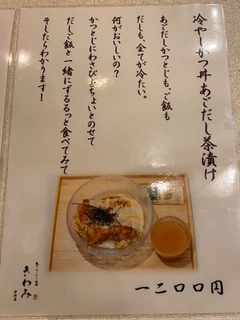 冷やしかつ丼 あごだし茶漬け
あごだしかつとじも、ご飯も
だしも、全てが冷たい。
何がおいしいの？
かつとじにわさびをちょいとのせて
だしご飯と一緒にずるるっと食べてみて
そしたらわかります！
きわみ
一二〇〇円